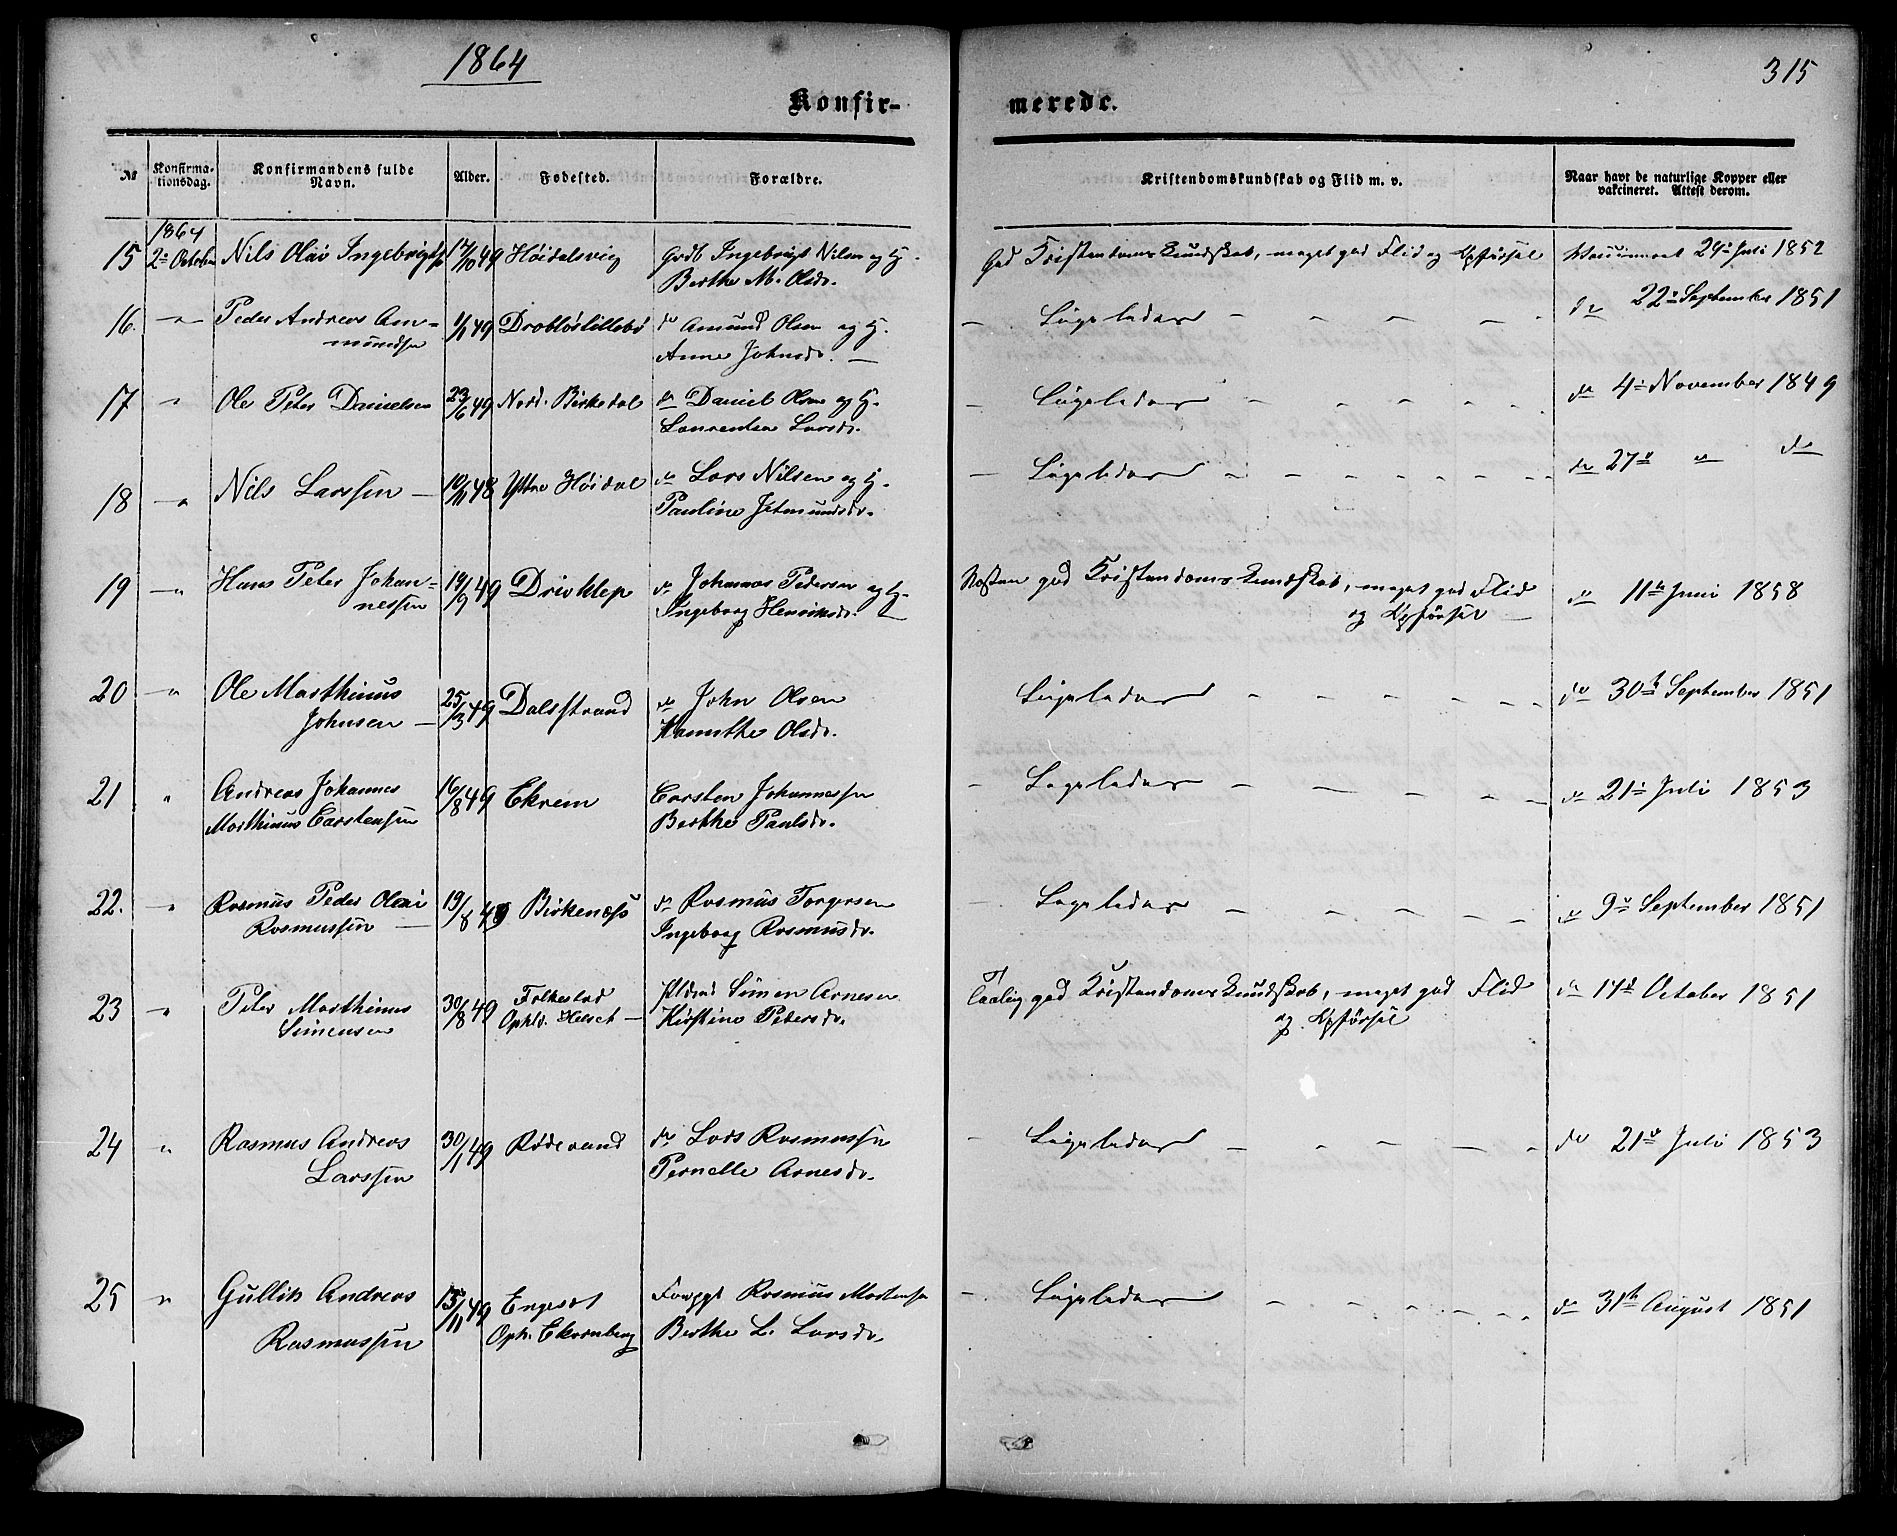 1864
315
Konfir-
merede.
№
Konfirma-
tionsdag.
Konfirmandens fulde
Navn.
Alder.
Fødested.
Forældre.
Kristendomskundskab og Flid m. v.
Naar havt de naturlige Kopper eller
vakcineret. Attest derom.
1864
15 2den October Nils Olai 17/10 49 Høidalsvig Grdb Ingebrigt Nilsen og H. God Kristendomskundskab, meget god Flid og Opførsel 1852
Berthe M. Olsdr.
16. " Peder Andreas Am- 49 do Amund Olsen og H. - Ligeledes - - - - do 22de September 1851
mundsen Anne Johnsdr. -
17 " Ole Peter Danielsen 23/6 49 Nord. Birkedal do Daniel Olsen og H. - Ligeledes - - - - do 4de November 1849
Larsdr.
18 " Nils Larssen - 10/11 48 Yttre Høidal do Lars Nilsen og H. - Ligeledes - - - - do 27de " do
Pauline Jetmundsdr.
19 " Hans Peter Johan- 19/9 49 Drivklep do Johannes Pedersen og H. Næsten god Kristendomskundskab, meget god Flid do 11te Juni 1858
nessen Ingeborg Henriksdr. og Opførsel -
20 " Ole Marthinus 25/3 49 Dalsstrand do John Olsen Ligeledes - - - - do 30te September 1851
Johnsen - Olsdr.
21 " Andreas Johannes 16/8 49 Ekrem Carsten Johannessen - Ligeledes - - - - do 21de Juli 1853
Marthinus Carstensen Berthe Paulsdr.
22. " Rasmus Peder Olai 19/8 49 Birkenæs do Rasmus Torgersen - Ligeledes - - - - do 9de September 1851
Rasmussen - Ingeborg Rasmusdr.
23 " Peter Marthinus 30/8 49 Folkestad Simen Arnesen Taalig god Kristendomskundskab, meget god Flid do October 1851
Simensen Ophld. Helset - Kirstine Pedersdr. og Opførsel
24 " Rasmus Andreas 30/1 49 Rødevand do Lars Rasmussen - Ligeledes - - - - do 21de Juli 1853
Larssen Pernelle Arnesdr.
25 " Gullik Andreas 15/11 49 Engeset Rasmus Mortensen - Ligeledes - - - - do 31te August 1851
Rasmussen Oph. Ekornberg Berthe L. Larsdr.